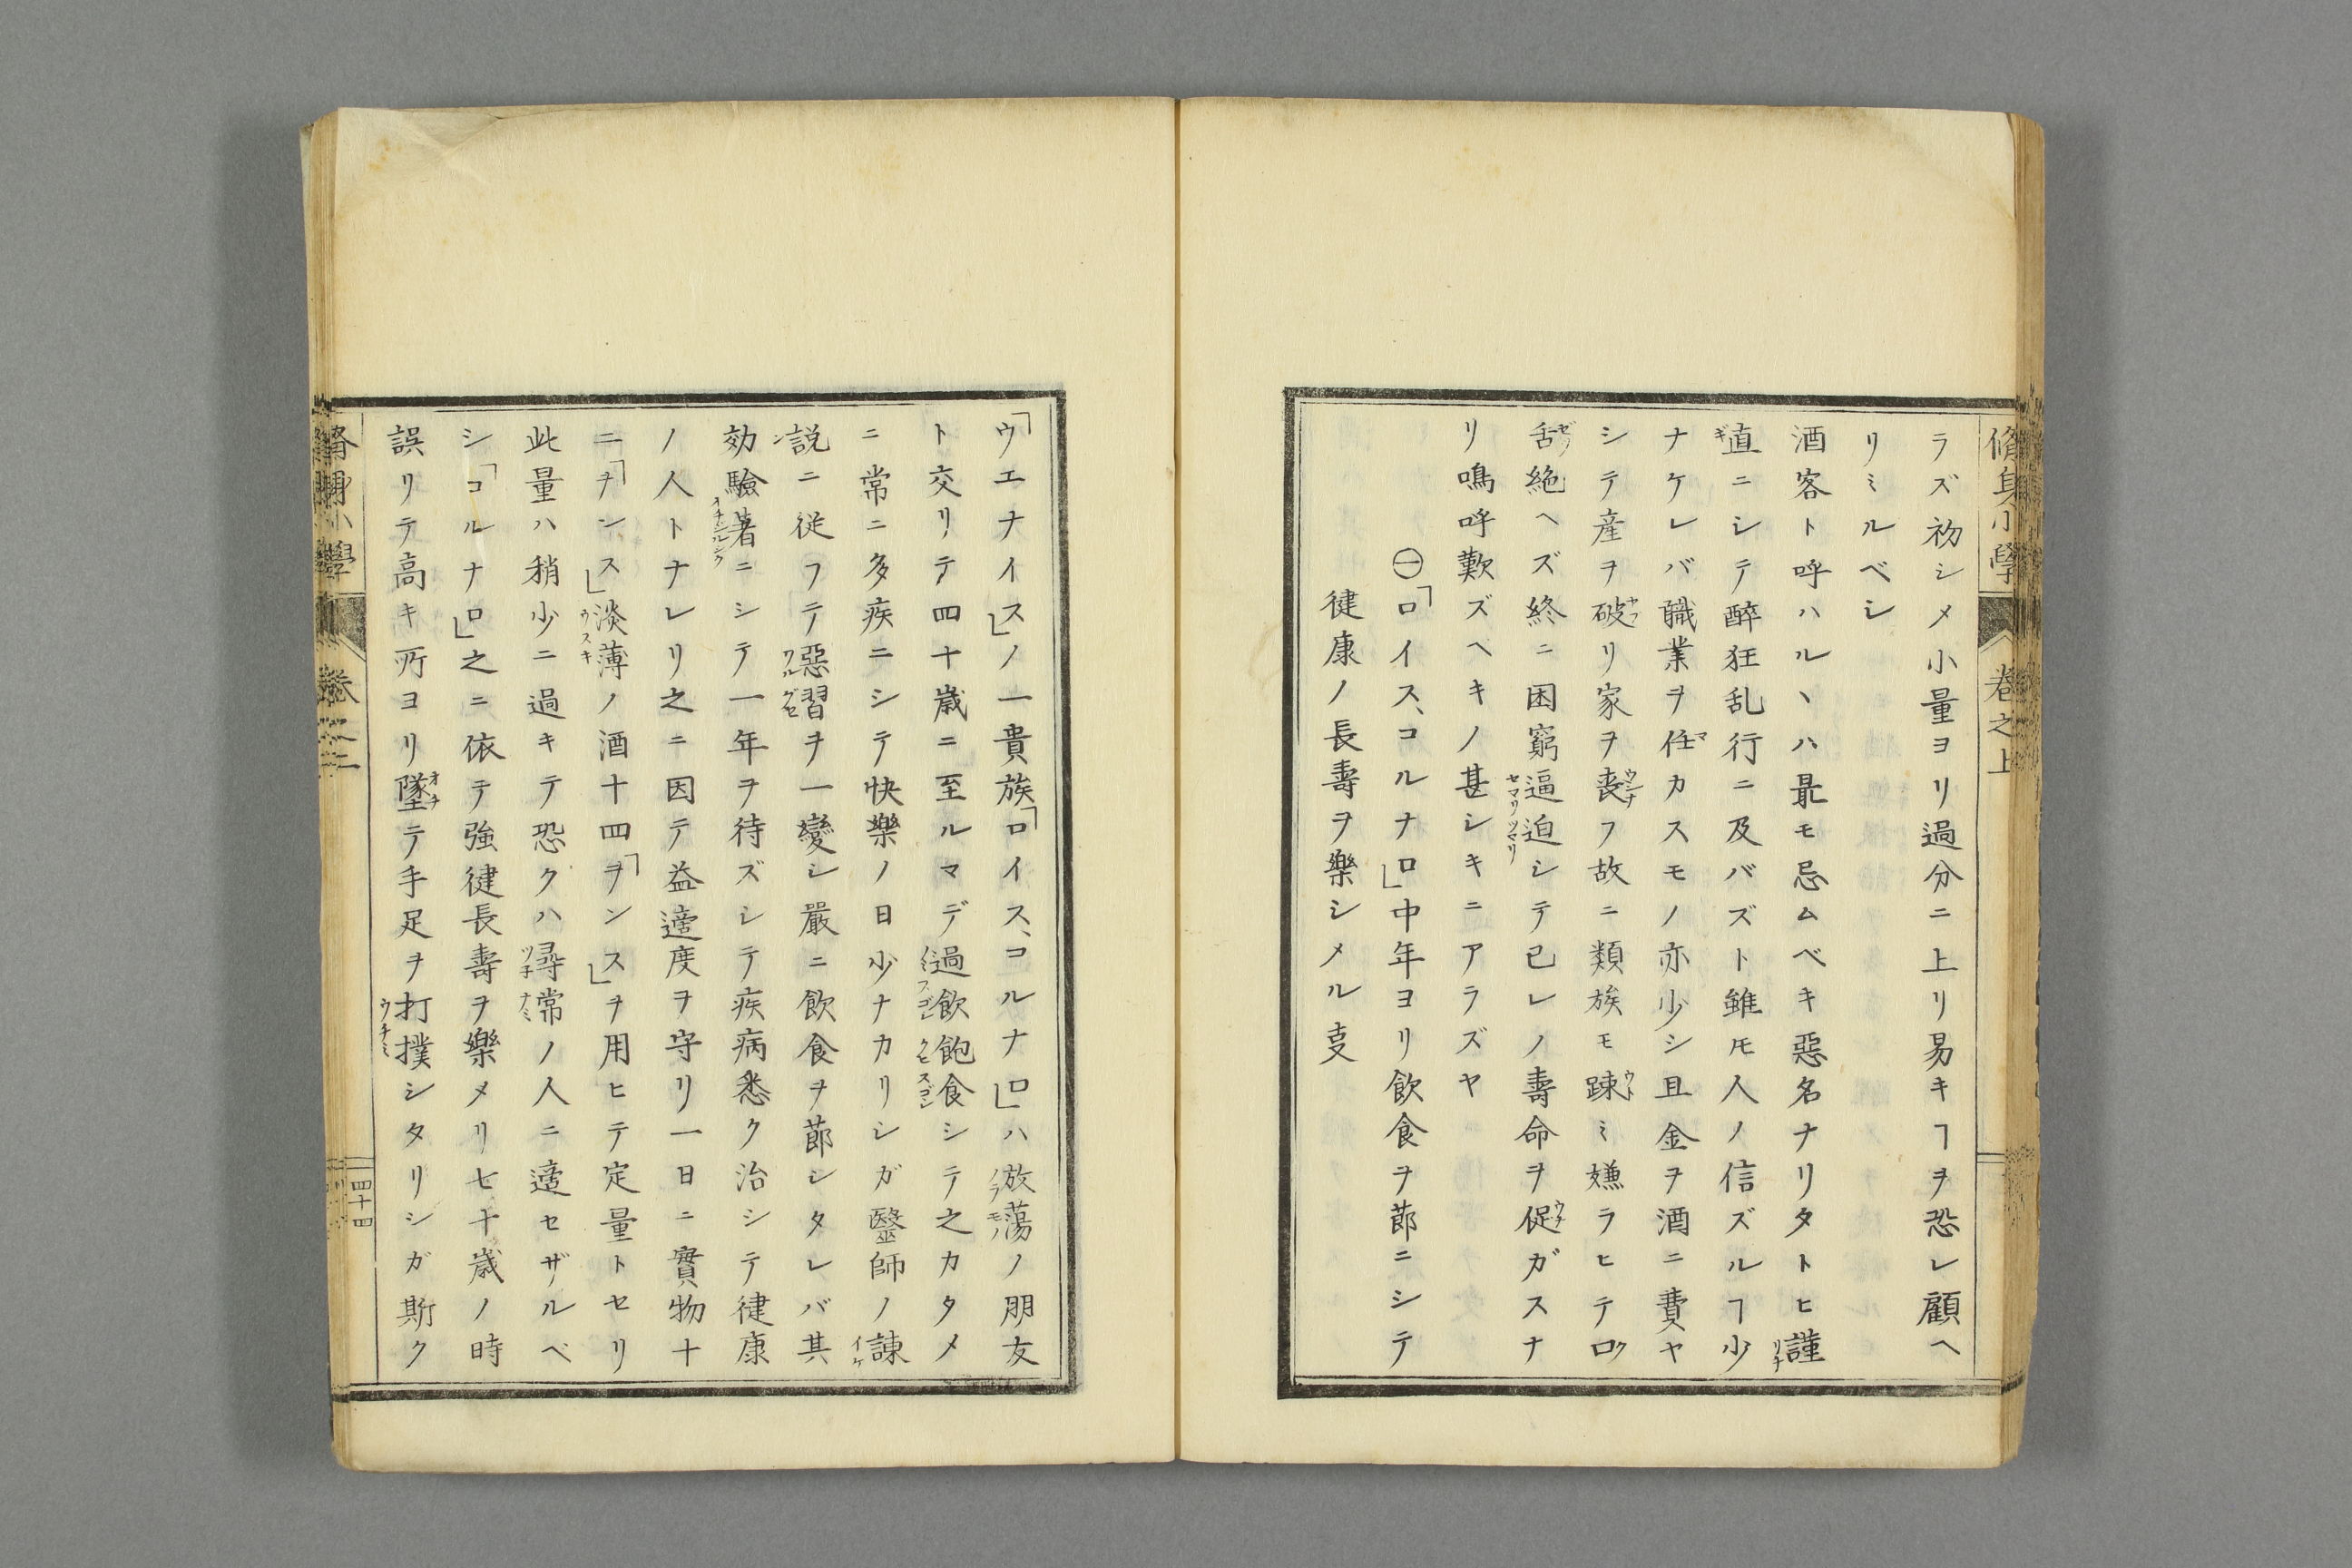 脩身小學 卷之上
ラズ初シメ小量ヨリ過分ニ上リ易キヿヲ恐レ顧ヘ
リミルベシ
酒客ト呼ハルヽハ最モ忌ムベキ惡名ナリタトヒ謹
直ニシテ醉狂乱行ニ及バズト雖𪜈人ノ信ズルヿ少
ナケレバ職業ヲ任カスモノ亦少シ且金ヲ酒ニ費ヤ
シテ産ヲ破リ家ヲ喪フ故ニ類族モ踈ミ嫌ラヒテ口
舌絶ヘズ終ニ困窮逼迫シテ已レノ壽命ヲ促ガスナ
リ鳴呼歎ズヘキノ甚シキニアラズヤ
㊀「ロイス、コルナロ」中年ヨリ飮食ヲ節ニシテ
健康ノ長壽ヲ樂シメル叓
「ウエナイス」ノ一貴族「ロイス、コルナロ」ハ放蕩ノ朋友
ト交リテ四十歳ニ至ルマデ過飮飽食シテ之カタメ
ニ常ニ多疾ニシテ快樂ノ日少ナカリシガ醫師ノ諫
説ニ従フテ惡習ヲ一變シ嚴ニ飮食ヲ節シタレバ其
効驗著ニシテ一年ヲ待ズシテ疾病悉ク治シテ健康
ノ人トナレリ之ニ因テ益適度ヲ守リ一日ニ實物十
二「ヲンス」淡薄ノ酒十四「ヲンス」ヲ用ヒテ定量トセリ
此量ハ稍少ニ過キテ恐クハ尋常ノ人ニ適セザルベ
シ「コルナロ」之ニ依テ強健長壽ヲ樂メリ七十歳ノ時
誤リテ高キ所ヨリ墜テ手足ヲ打撲シタリシガ斯ク
四十四